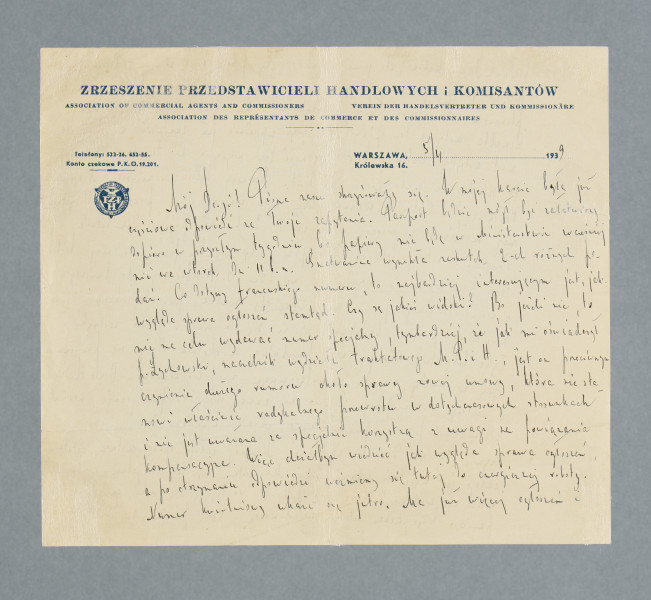 ZRZESZENIE PRZEDSTAWICIELI HANDLOWYCH i KOMISANTÓW
ASSOCIATION OF COMMERCIAL AGENTS AND COMMISSIONERS VEREIN DER HANDELSVERTRETER UND KOMMISSIONÄRE
ASSOCIATION DES REPRÉSENTANTS DE COMMERCE ET DES COMMISSIONNAIRES
Telefony: 522-26. 652-58.
Konto czekowe P.K.O. 19,201.
WARSZAWA, 5/4 1939
Królewska 16.
Mój Drogi! Pisma nasze skrzyżowały się. W mojej karcie była już
częściowa odpowiedź na Twoje zapytania. Paszport będzie mógł być załatwiony
dopiero w przyszłym tygodniu bo papiery nie będą w Ministerstwie wcześniej
niż we wtorek 2-ch różnych po-
dań. Co dotyczy francuskiego numeru, to najbardziej interesującym jest, jak
wygląda sprawa ogłoszeń stamtąd. Czy są jakieś widoki? Bo jeżeli nie, to
nie ma celu wydawać numer specjalny, tembardziej, że jak mi oświadczył
p. Łychowski, naczelnik wydziału traktatowego M.P. i H., jest on przeciwny
czynieniu dużego rumoru około sprawy nowej umowy, która nie sta-
nowi właściwie radykalnego przewrotu w dotychczasowych stosunkach
i nie jest uważana za specjalnie korzystną z uwagi na powiązania
kompensacyjne. Więc chciałbym wiedzieć jak wygląda sprawa ogłoszeń,
a po otrzymaniu odpowiedzi weźmiemy się tutaj do energicznej roboty.
Numer kwietniowy ukaże się jutro. Ma już więcej ogłoszeń i